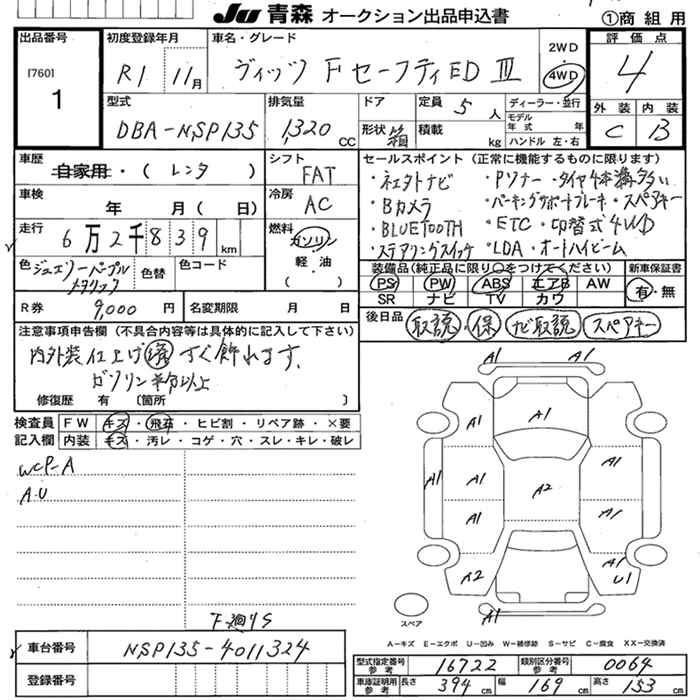 JU 青森 オークション出品申込書
①商組用
出品番号 初度登録年月 車名・グレード 2WD 評価点
[760] R1 11月 ヴィッツ FセーフティED III 4WD 4
1
型式 排気量 ドア 定員 5人 ディーラー・並行 外装 内装
DBA-NSP135 1,320 CC 形状 積載 kg モデル年式 年 C B
ハンドル 左・右
車歴 自家用・(レンタ) シフト FAT セールスポイント (正常に機能するものに限ります)
車検 年 月 ( 日) 冷房 AC
・Bカメラ ・パーキングサポートブレーキ・スペアキー
走行 6万2千839km 燃料 ガソリン・軽油
・BLUETOOTH ・ETC ・切替式4WD
・ステアリングスイッチ ・LDA ・オートハイビーム
色 ジュエリーパープルメタリック 色替 色コード ( )
装備品(純正品に限り○をつけてください) 新車保証書
PS PW ABS エアB AW 有・無
SR ナビ TV カワ
R券 9,000円 名変期限 月 日
後日品 取説・保 ナビ取説 スペアキー
注意事項申告欄 (不具合内容等は具体的に記入して下さい)
内外装仕上げ済 すぐ飾れます。
ガソリン半分以上
修復歴 有 〔箇所 〕
検査員記入欄 FW キズ・飛石・ヒビ割・リペア跡・×要
内装 キズ・汚レ・コゲ・穴・スレ・キレ・破レ
WCP-A
A.U
A1 A1
A1 A1 A1
A1 A1 A2 A1
A1 A1
A2 A1 U1
A1
スペア
下廻りS
A-キズ E-エクボ U-凹み W-補修跡 S-サビ C-腐食 XX-交換済
車台番号 NSP135-4011324
登録番号
型式指定番号参考 16722 類別区分番号参考 0064
車庫証明用参考 長さ 394cm 幅 169cm 高さ 153cm